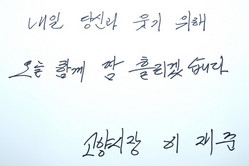 내일 당신과 웃기 위해
오늘 함께 땀 흘리겠습니다
고양시장 이재준